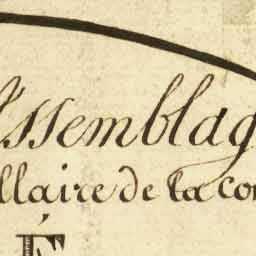 'ssemblag
llaire de la con
É